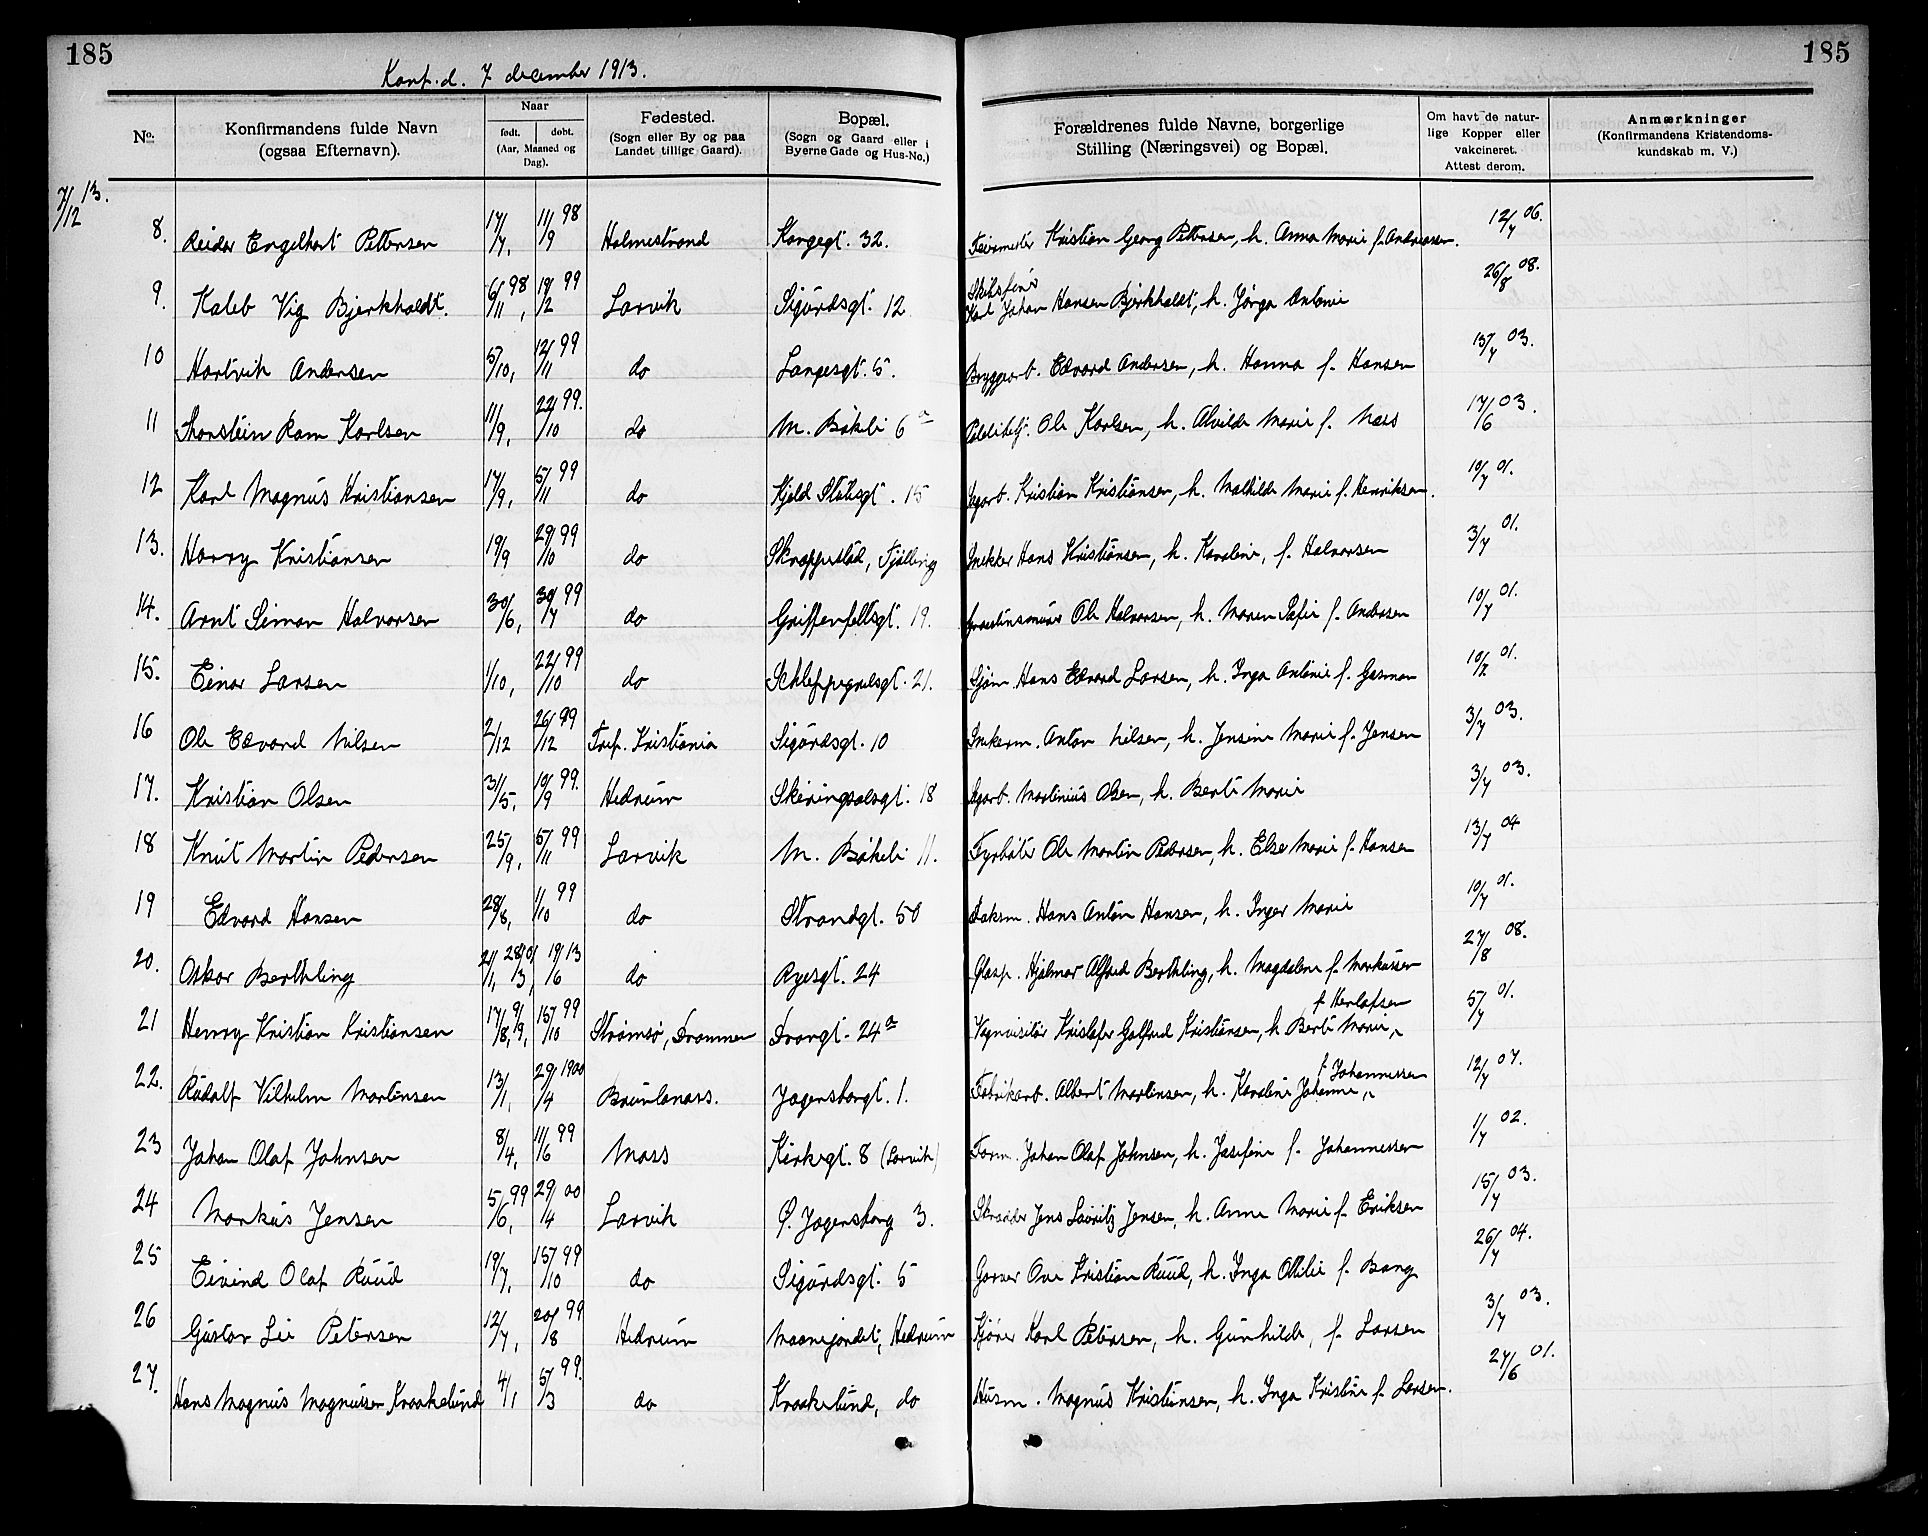 185
185
Konf. d. 7 december 1913.
No.
Konfirmandens fulde Navn (ogsaa Efternavn).
Naar
født. døbt.
(Aar, Maaned og Dag).
Fødested.
(Sogn eller By og paa Landet tillige Gaard).
Bopæl.
(Sogn og Gaard eller i Byerne Gade og Hus-No.)
Forældrenes fulde Navne, borgerlige Stilling (Næringsvei) og Bopæl.
Om havt de naturlige Kopper eller vakcineret. Attest derom.
Anmærkninger
(Konfirmandens Kristendomskundskab m. V.)
7/12 13.
8. Reidar Engelhart Pettersen 17/7, 11/9 98 Holmestrand Kongegt. 32. Feiermester Kristian Georg Pettersen, h. Anna Marie f. Andreasen. 12/7 06.
9. Kaleb Vig Bjerkholdt. 6/11 98, 19/2 99 Larvik Sigurdsgt. 12 Karl Johan Hansen Bjerkholdt, h. Jørga Antonie 26/8 08.
10 Hartvik Andersen 5/10, 12/11 99 do Langesgt. 5. Bryggearb. Edvard Andersen, h. Hanna f. Hansen 13/7 03.
11 Thorstein Ram Karlsen 11/9, 22/10 99. do M. Bøkeli 6a Ole Karlsen, h. Alvilde Marie f. Næss 17/6 03.
12 Karl Magnus Kristiansen 17/9, 5/11 99 do Kjeld Stubsgt. 15 Kristian Kristiansen, h. Mathilde Marie f. Henriksen. 10/7 01.
13. Harry Kristiansen 19/9 29/10 99 do Skreppestad, Tjølling Snekker Hans Kristiansen, h. Karoline, f. Halvorsen 3/7 01.
14. Arnt Simon Halvorsen 30/6, 30/7 99 do Griffenfeltsgt. 19. Ole Halvorsen, h. Maren Sofie f. Andersen 10/7 01.
15. Einar Larsen 1/10, 22/10 99 do Schleppegrelsgt. 21. Sjøm. Hans Edvard Larsen, h. Inga Antonie f. Gasman 10/7 01.
16 Ole Edvard Nilsen 2/12 26/12 99 Tref. Kristiania Sigurdsgt. 10 Snekerm. Anton Nilsen, h. Jensine Marie f. Jensen 3/7 03.
17. Kristian Olsen 31/5, 10/9 99. Hedrum Skiringsalsgt. 18 Martinius Olsen, h. Berte Marie 3/7 03.
18 Knut Martin Pedersen 25/9, 5/11 99 Larvik M. Bøkeli 11. Fyrbøter Ole Martin Pedersen, h. Else Marie f. Hansen 13/7 04
19 Edvard Hansen 28/8, 1/10 99 do Strandgt. 50 Hans Anton Hansen, h. Inger Marie 10/7 01.
20. Oskar Berthling 19/6 13 do Ryesgt. 24 Glasp. Hjalmar Alfred Berthling, h. Magdalene f. Markussen 27/8 08.
21 Henry Kristian Kristiansen 17/8, 9/9, 15/10 99 Strømsø, Drammen Trangt. 24a Vognvisitør Kristofer Gotfred Kristiansen, h. Berte Marie f. Herlofsen 5/7 01.
22. Rudolf Vilhelm Martinsen 13/1, 29/4 1900 Brunlanæs. Jegersborgt. 1. Fabrikarb. Albert Martinsen, h. Karoline Johanne f. Johannessen 12/7 07.
23 Johan Olaf Johnsen 8/4, 11/6 99 Moss Kirkegt. 8 (Larvik) Form. Johan Olaf Johnsen, h. Josefine f. Johannessen 1/7 02.
24 Markus Jensen 5/6, 99 29/4 00 Larvik Ø. Jegersborg 3. Skrædder Jens Lauritz Jensen, h. Anne Marie f. Eriksen 15/7 03.
25 Eivind Olaf Ruud 19/7, 15/10 99 do Sigurdsgt. 5 Garver Ove Kristian Ruud, h. Inga Otilie f. Bang 26/7 04.
26 Gustav Lie Petersen 12/7, 20/8 99 Hedrum Maanejordet, Hedrum Kjører Karl Petersen, h. Gunhilde, f. Larsen 3/7 03.
27. Hans Magnus Magnussen Kraakelund 4/1, 5/3 99. do Kraakelund, do Husm. Magnus Kristiansen, h. Inga Kristine f. Larsen. 27/6 01.